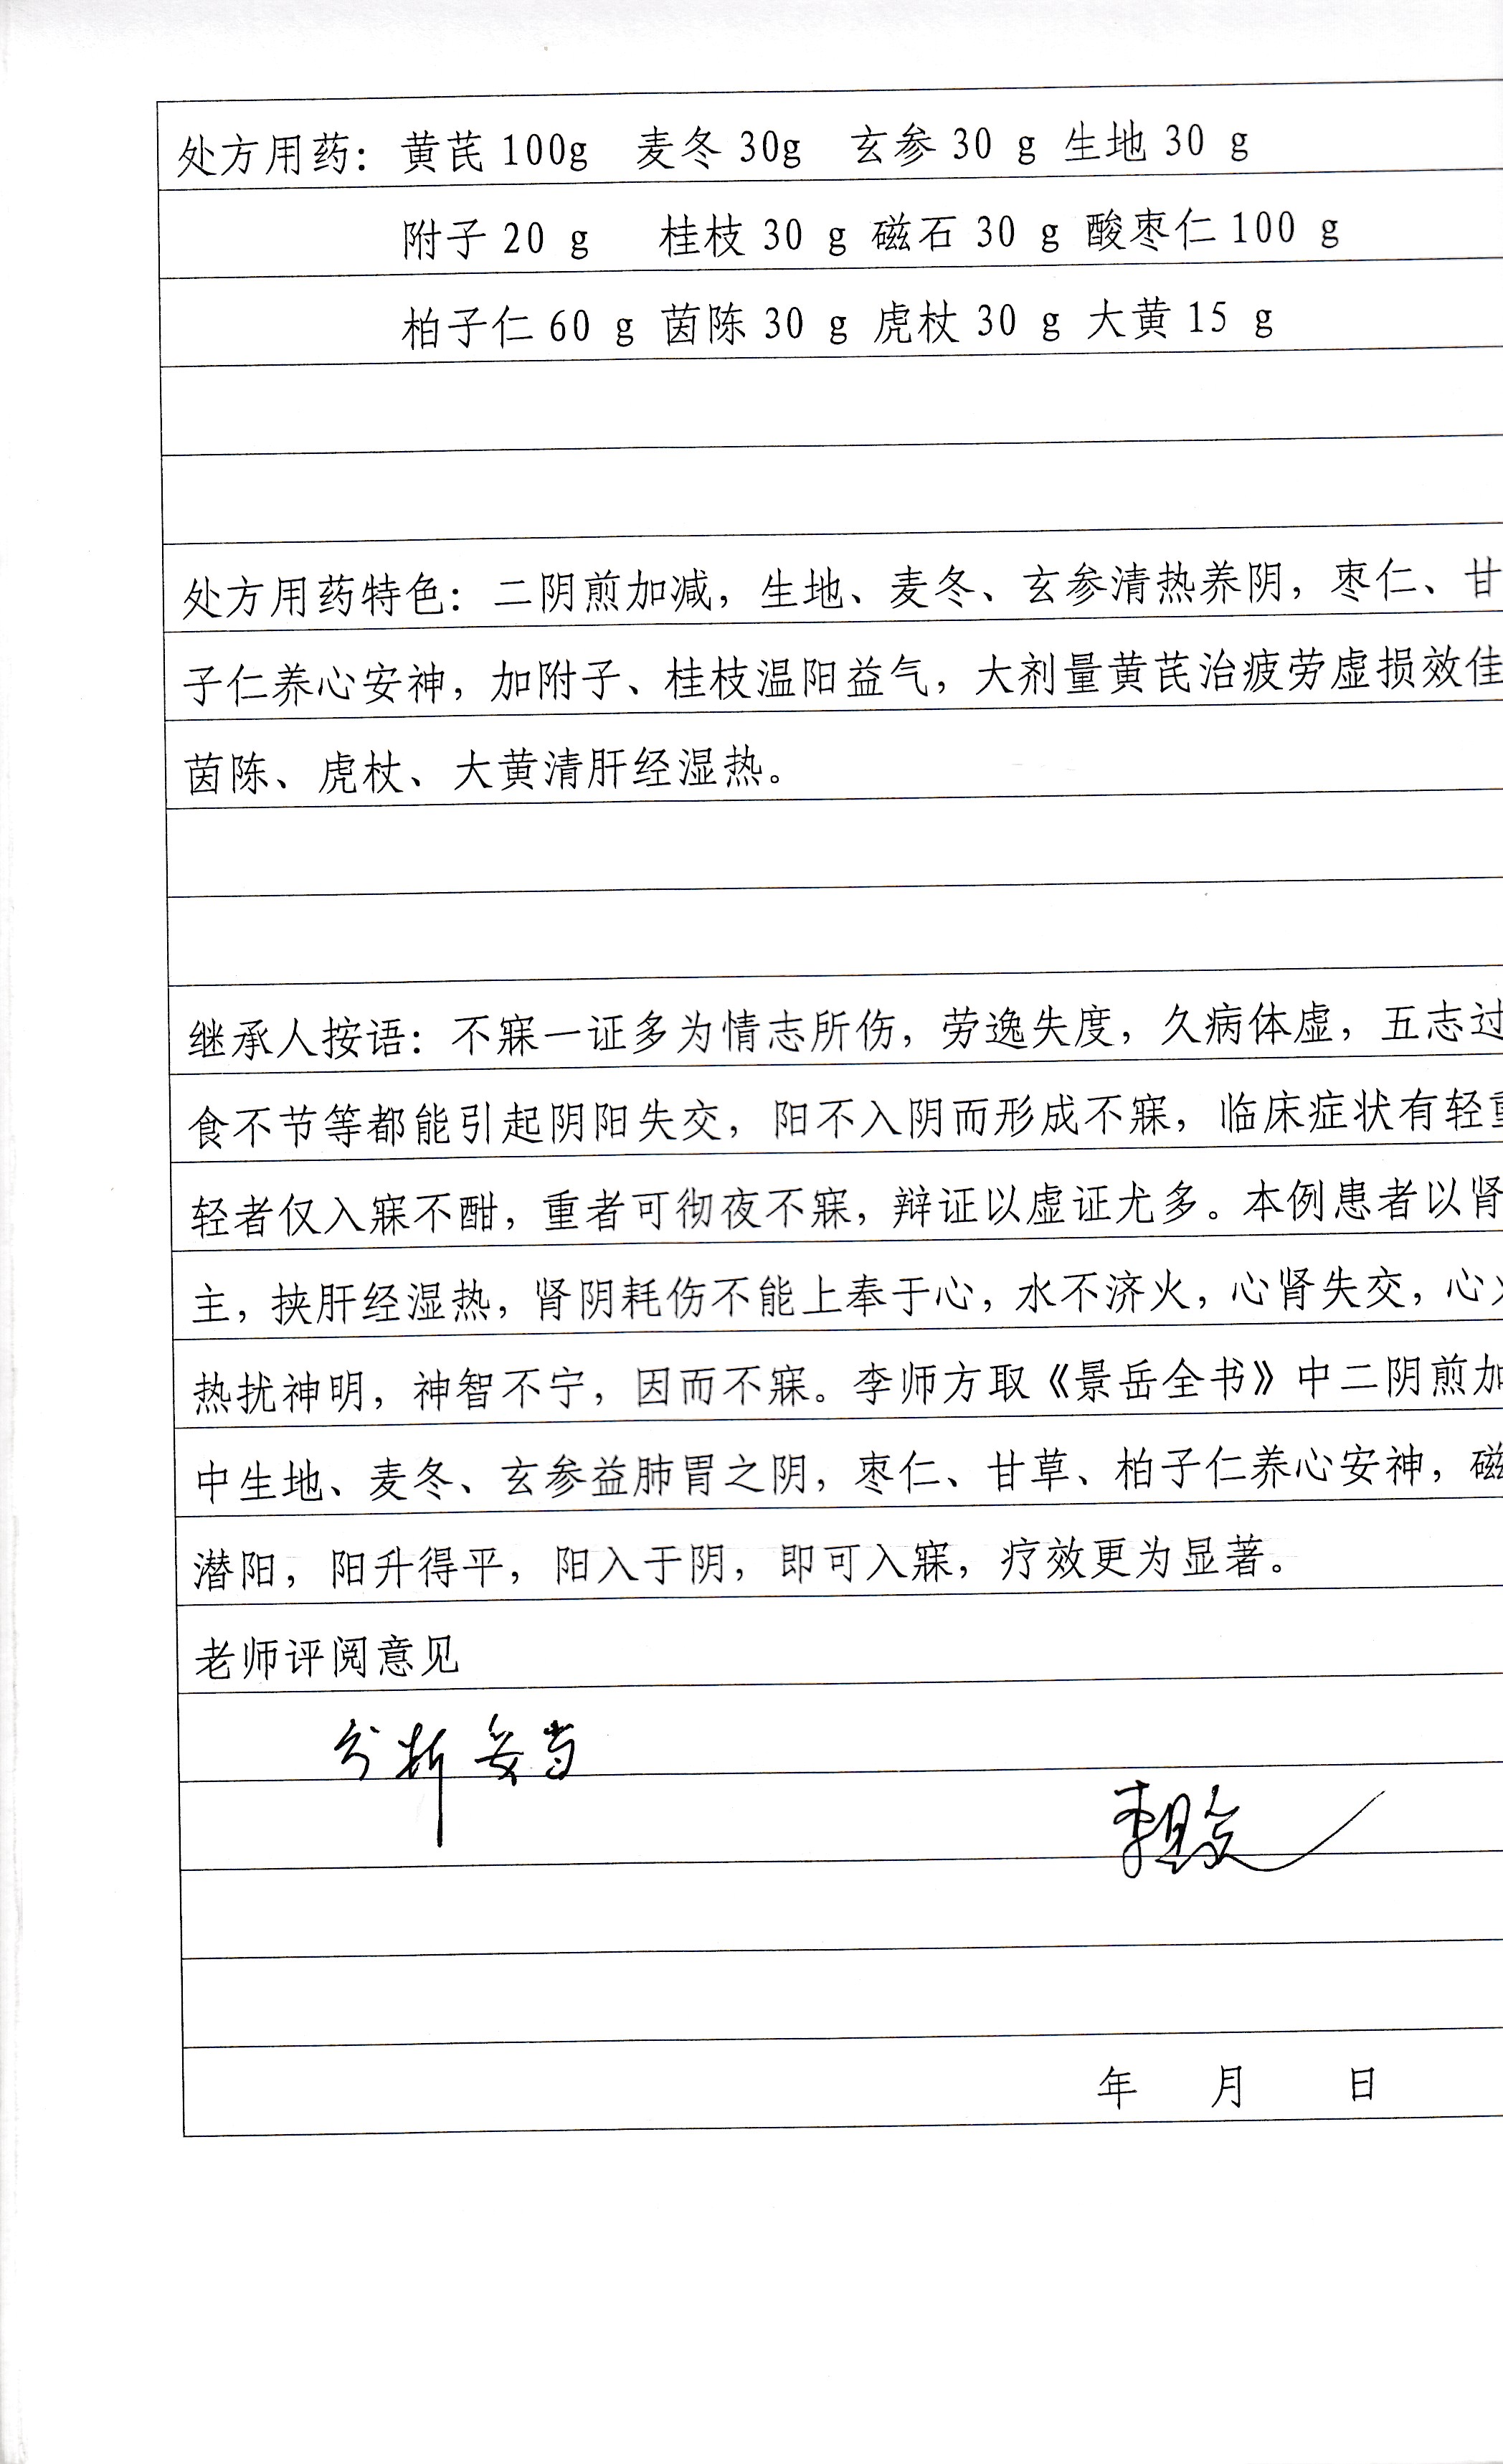 处方用药：黄芪 100g 麦冬 30g 玄参 30 g 生地 30 g
附子 20 g 桂枝 30 g 磁石 30 g 酸枣仁 100 g
柏子仁 60 g 茵陈 30 g 虎杖 30 g 大黄 15 g
处方用药特色：二阴煎加减，生地、麦冬、玄参清热养阴，枣仁、甘
子仁养心安神，加附子、桂枝温阳益气，大剂量黄芪治疲劳虚损效佳
茵陈、虎杖、大黄清肝经湿热。
继承人按语：不寐一证多为情志所伤，劳逸失度，久病体虚，五志过
食不节等都能引起阴阳失交，阳不入阴而形成不寐，临床症状有轻重
轻者仅入寐不酣，重者可彻夜不寐，辩证以虚证尤多。本例患者以肾
主，挟肝经湿热，肾阴耗伤不能上奉于心，水不济火，心肾失交，心
热扰神明，神智不宁，因而不寐。李师方取《景岳全书》中二阴煎加
中生地、麦冬、玄参益肺胃之阴，枣仁、甘草、柏子仁养心安神，磁
潜阳，阳升得平，阳入于阴，即可入寐，疗效更为显著。
老师评阅意见
分析妥当
年 月 日